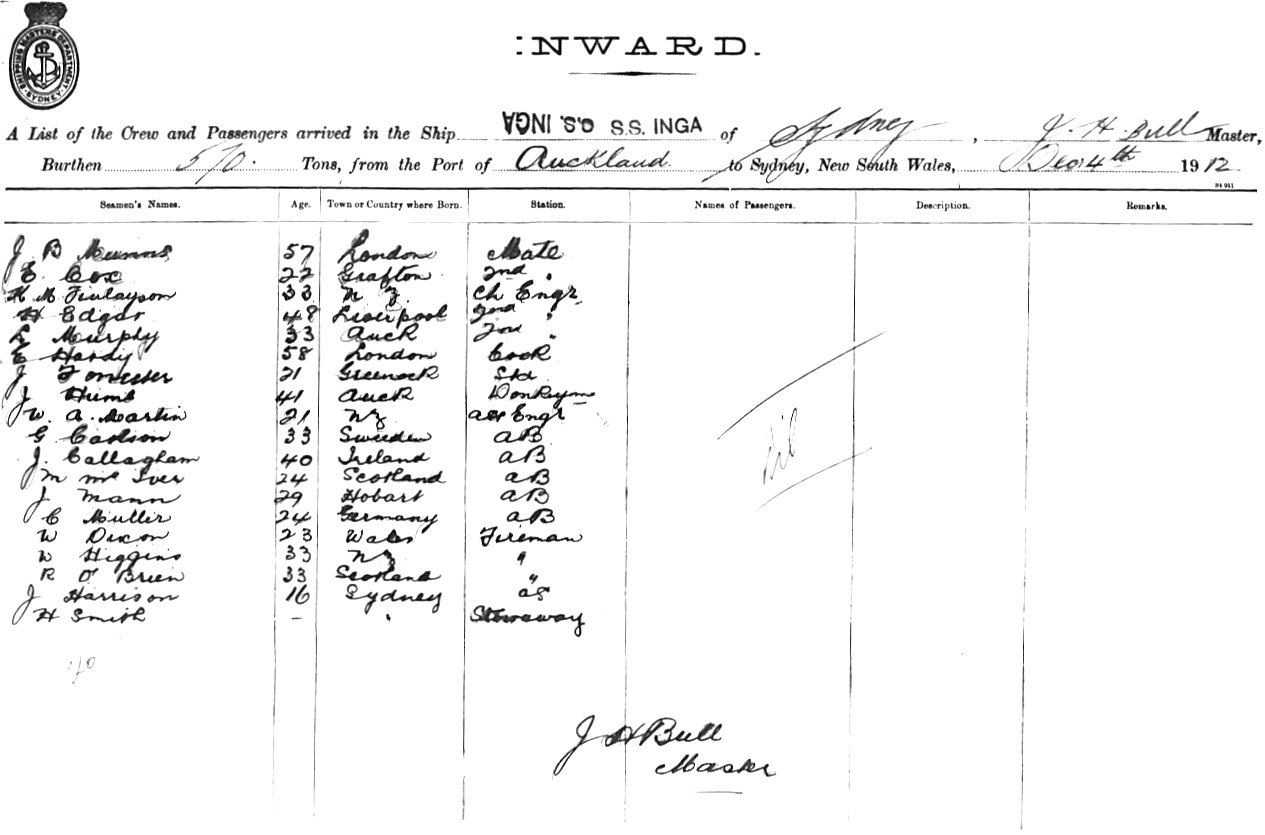 SHIPPING MASTERS DEPARTMENT SYDNEY
INWARD.
A List of the Crew and Passengers arrived in the Ship S.S. INGA S.S. INGA of Sydney, J. H. Bull Master,
Burthen 570. Tons, from the Port of Auckland to Sydney, New South Wales, Dec 4th 1912
Seamen's Names. Age. Town or Country where Born. Station. Names of Passengers. Description. Remarks.
J B Munns 57 London Mate
E Cox 22 Grafton 2nd "
H M Finlayson 33 N Z. Ch Engr
H Edgar 48 Liverpool 2nd "
L Murphy 33 Auck "
E Hardy 58 London Cook
J Forrester 21 Greenock Std
J Hume 41 Auck Donkeym
W A. Martin 21 NZ Engr
G Carlson 33 Sweden AB
J. Callagham 40 Ireland AB
M McIver 24 Scotland AB
J Mann 29 Hobart AB
C Muller 24 Germany AB
W Dixon 23 Wales Fireman
W Higgins 33 NZ "
R O'Brien 33 Scotland "
J Harrison 16 Sydney OS
H Smith – " Stowaway
Nil
J H Bull
Master